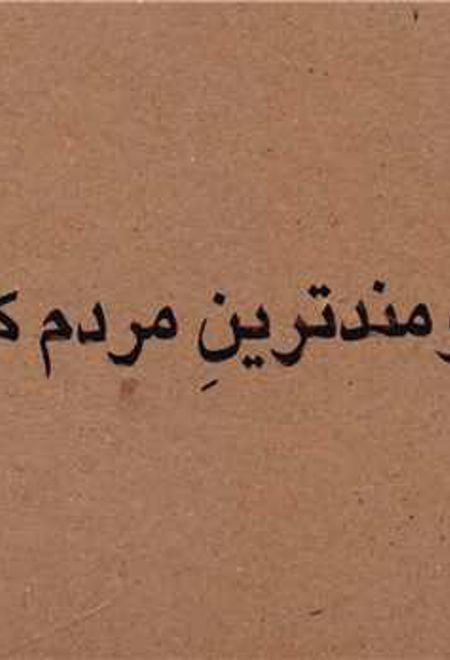 ومندترینِ مردم ک